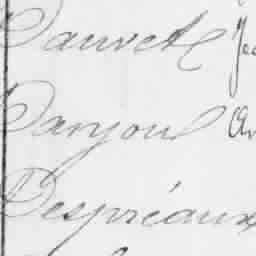 Dauvet Je
Danjou An
Despréaux